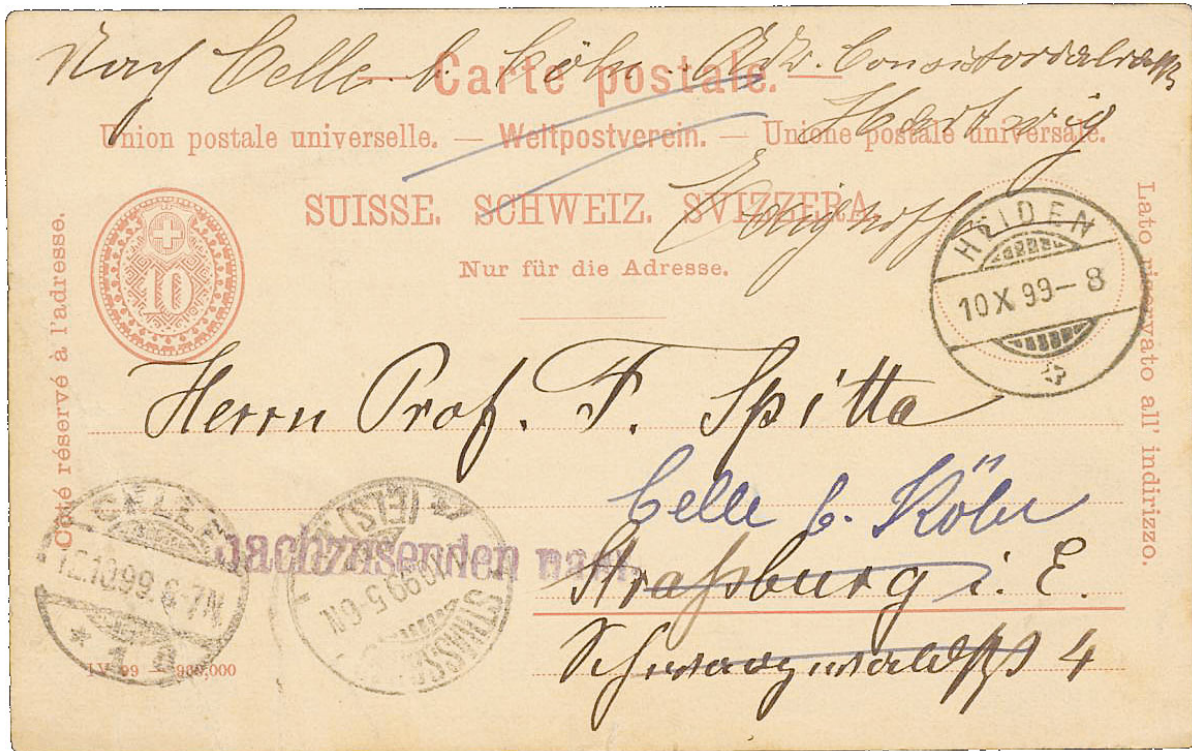 Nach Celle b. Köln Adr. Consistorialrath
Hertwig
Carte postale.
Union postale universelle. — Weltpostverein. — Unione postale universale.
SUISSE. SCHWEIZ. SVIZZERA.
Nur für die Adresse.
10
Côté réservé à l'adresse.
Lato riservato all' indirizzo.
HEIDEN
10 X 99 – 8
Herrn Prof. F. Spitta
Celle b. Köln
nachzusenden nach
Straßburg i. E.
Schwarzwaldstr 4
CELLE
12.10.99. 6-7N
* 1
STRASSBURG (ELS)
10.99.5-6N.
IV 99 —